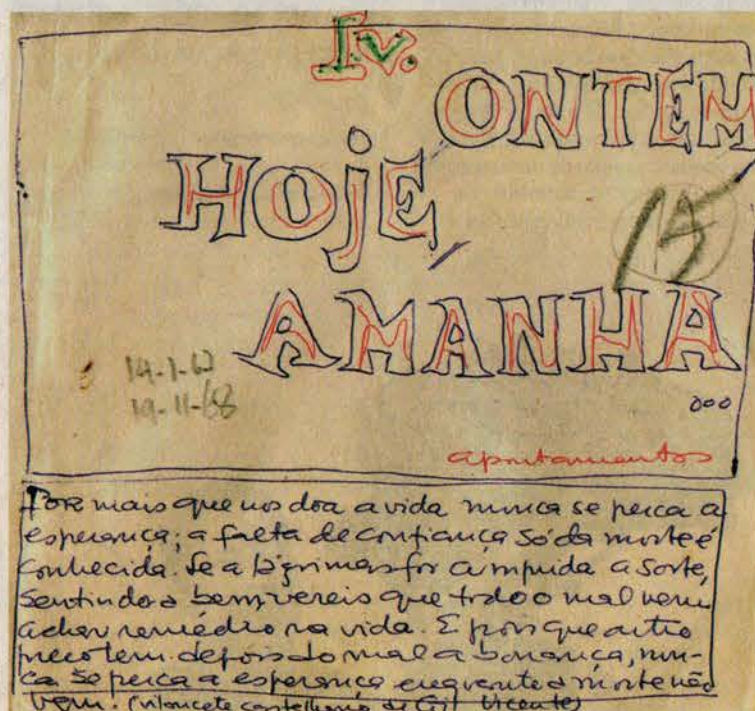 IV.
ONTEM
HOJE,
AMANHA
15
14-1-62
19-11-68
ooo
apontamentos
Por mais que nos doa a vida nunca se perca a
esperança; a falta de confiança só da morte é
conhecida. Se a lágrimas for cumprida a sorte,
sentindo a bem, vereis que todo o mal vem
achar remédio na vida. E pois que outro
preço tem depois do mal a bonança, nun-
ca se perca a esperança enquanto a morte não
vem. (vilancete castelhano de Gil Vicente)